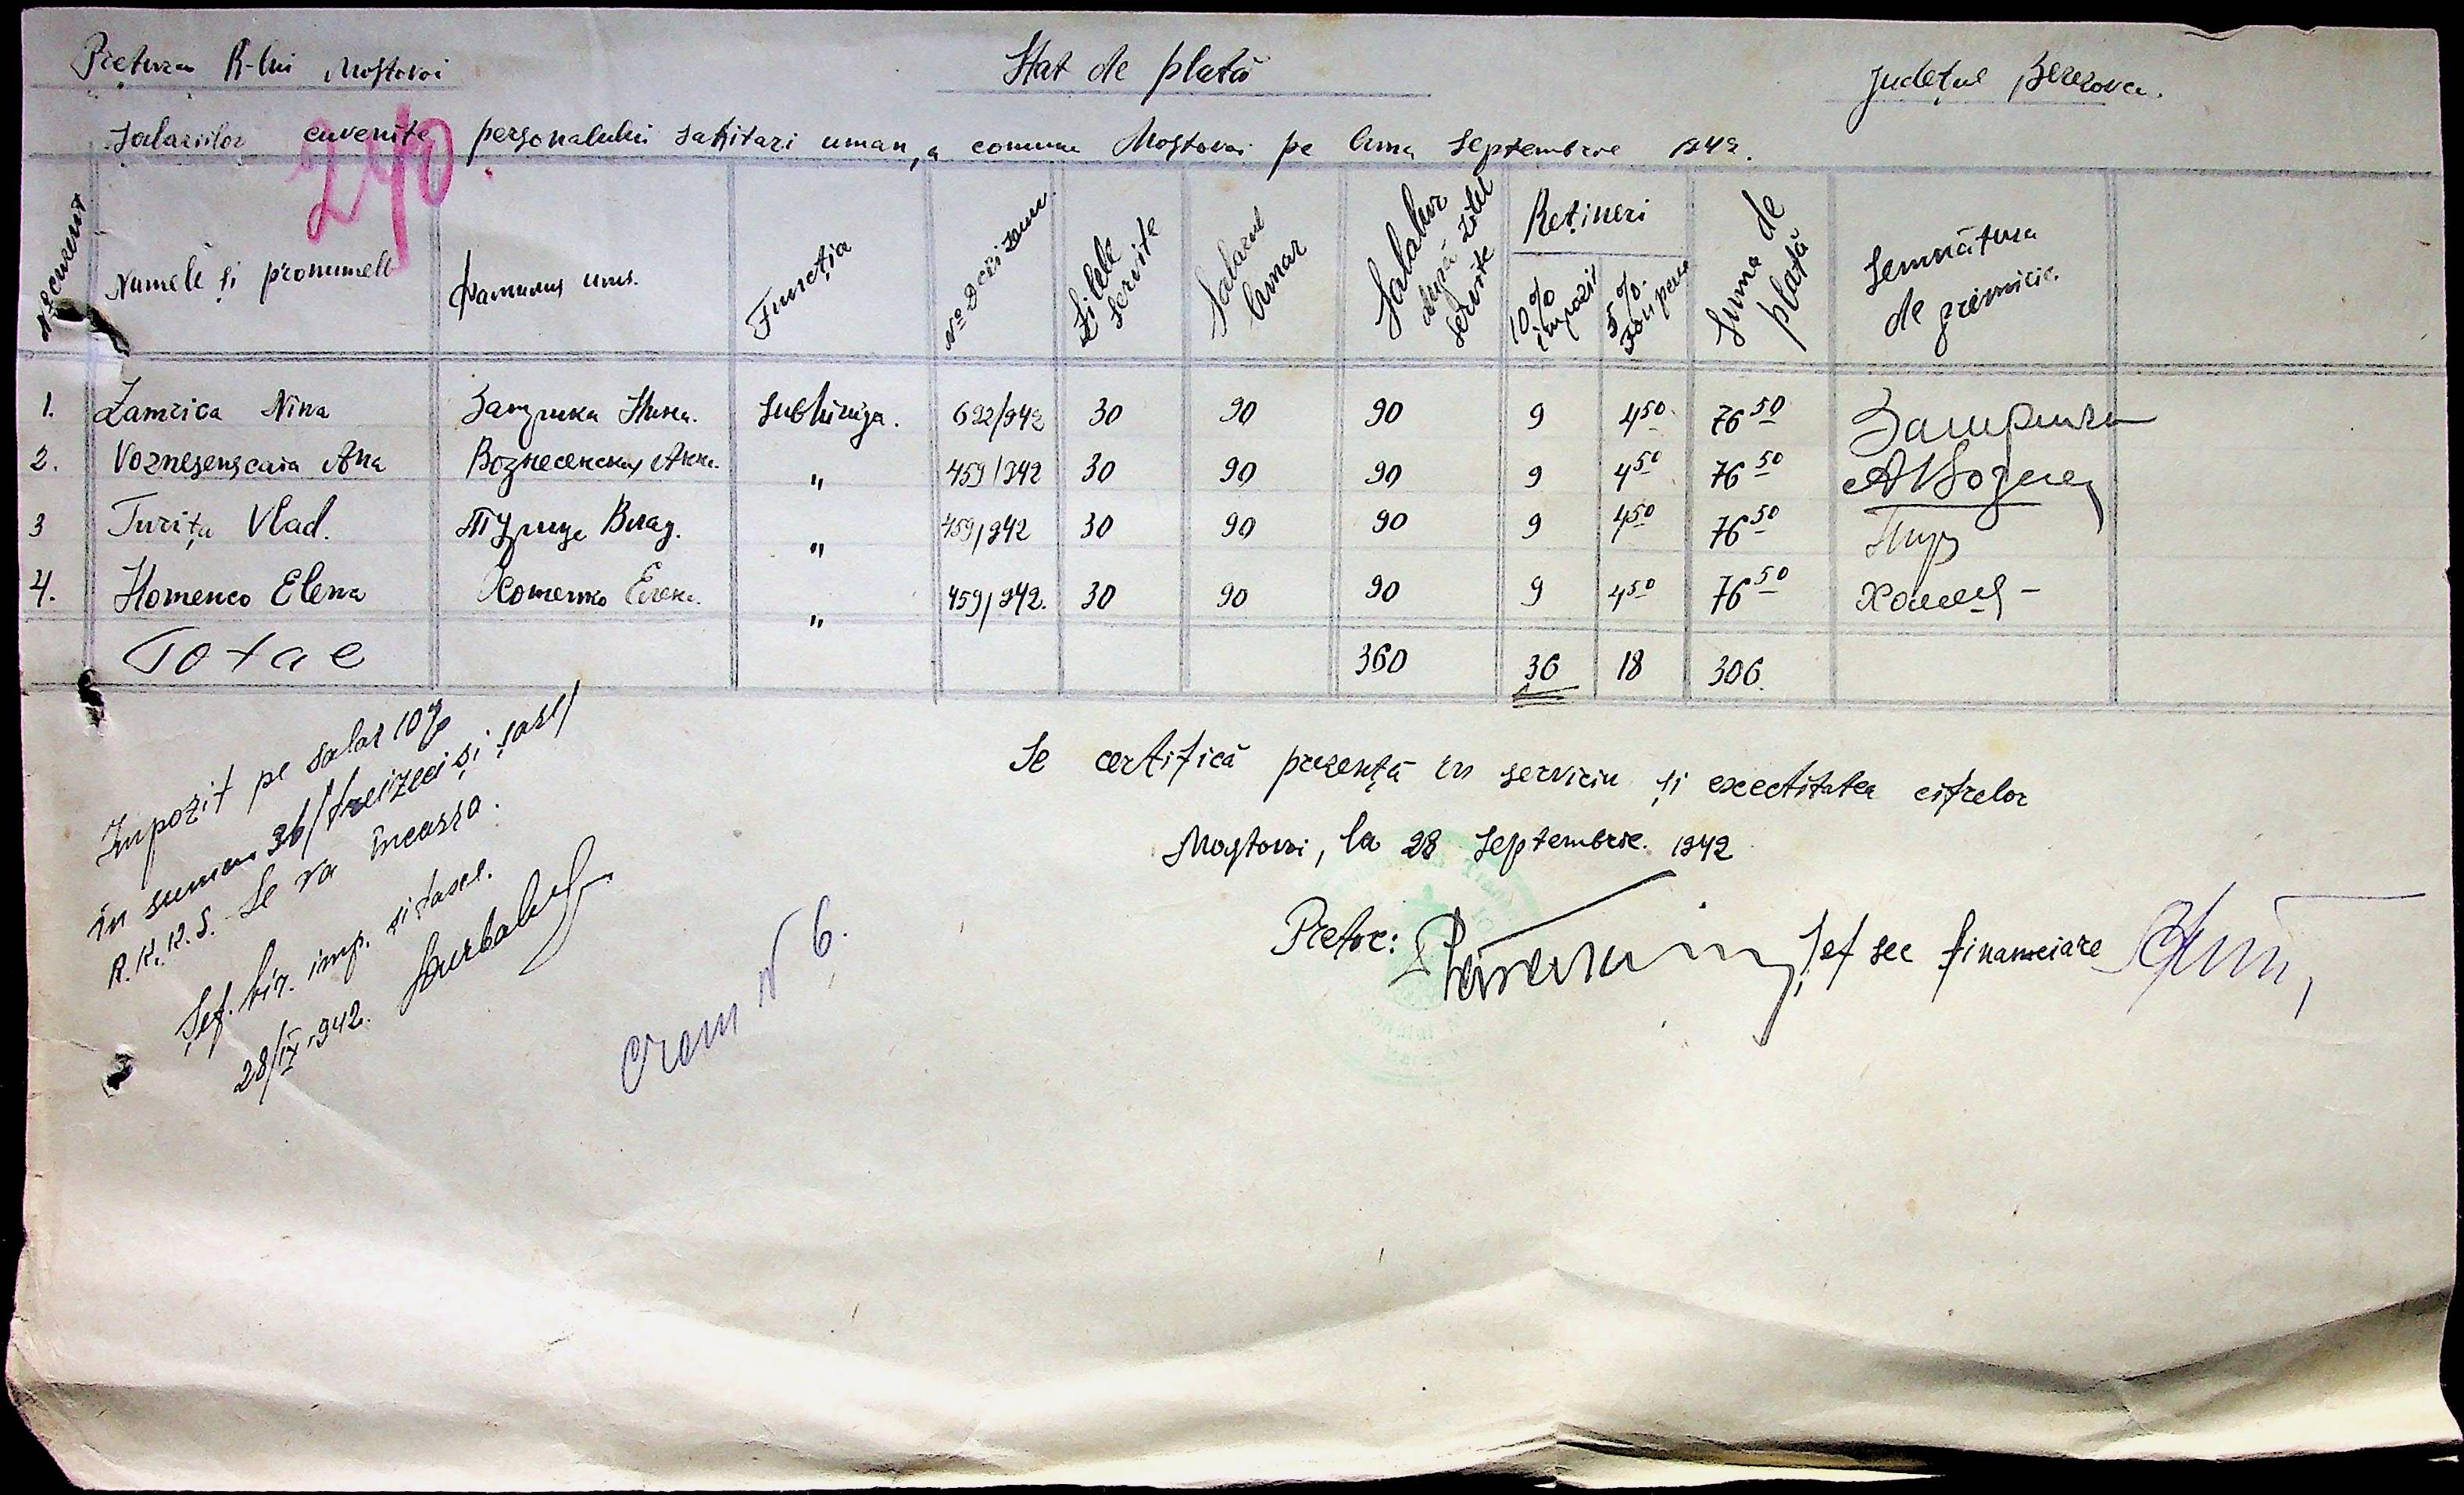 Pretura R-lui Mostovoi
Stat de plată
Județul Berezovca.
Salariilor cuvenite personalului sanitari uman, a comunei Mostovoi pe luna Septembrie 1942.
240
No curent
Numele și pronumele
Фамилия имя.
Funcția
No Deciziunei.
Zilele servite
Salarul lunar
Salarul după zilele servite
Rețineri
10% impozit
5%
Suma de plată
Semnătura de primirie.
1. Zamrica Nina Замрика Нина. Subhiriga. 622/942 30 90 90 9 4 50 76 50 Замрика
2. Voznesenscaia Ana Вознесенская Анна. " 459/942 30 90 90 9 4 50 76 50 АВознес
3 Turița Vlad. Турица Влад. " 459/942 30 90 90 9 4 50 76 50 Тур
4. Homenco Elena Хоменко Елена. " 459/942. 30 90 90 9 4 50 76 50 Хомен
Total 360 36 18 306.
Impozit pe salar 10%
în suma 36/treizeci și șase/
R.K.K.S. Se va încassa.
Șef. bir. imp. și taxe.
28/IX-942.
Se certifică prezență în serviciu și exectitatea cifrelor
Mostovoi, la 28 Septembrie. 1942
Pretor:
Șef sec financiare
N 6.